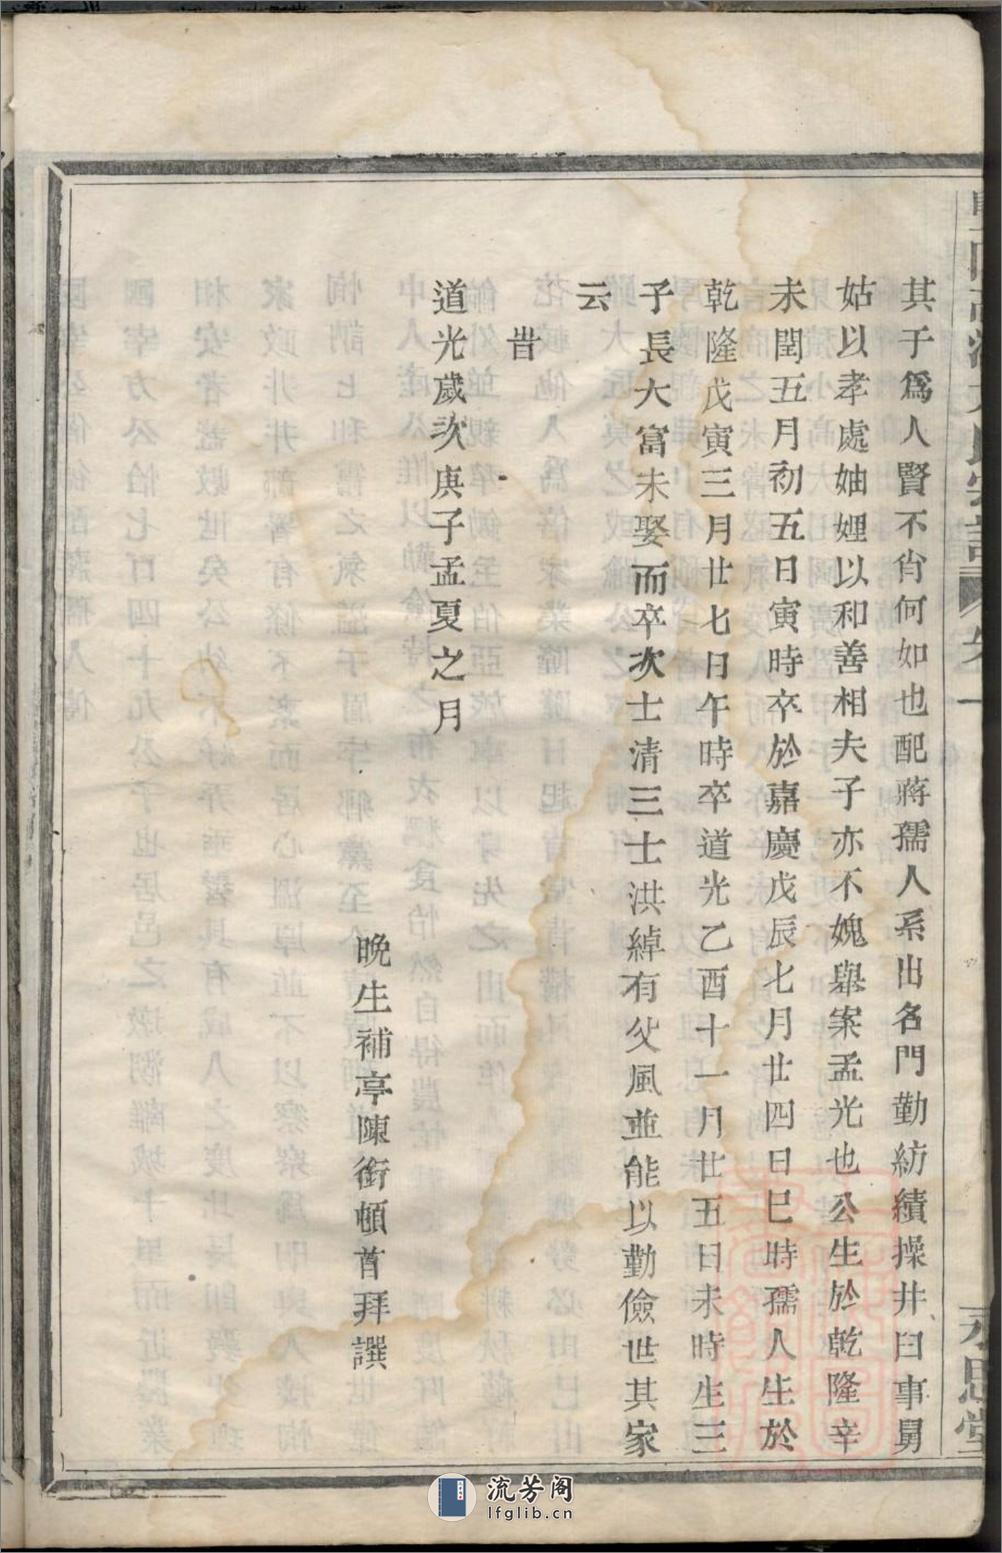 其子爲人賢不肖何如也配蔣孺人系出名門勤紡績操井臼事舅
姑以孝處妯娌以和善相夫子亦不媿舉案孟光也公生於乾隆辛
未閏五月初五日寅時卒於嘉慶戊辰七月廿四日巳時孺人生於
乾隆戊寅三月廿七日午時卒道光乙酉十一月廿五日未時生三
子長大富未娶而卒次士清三士洪綽有父風並能以勤儉世其家
云
昔
道光歲次庚子孟夏之月
晚生補亭陳銜頓首拜譔
氏宗譜
卷一
永思堂
流芳阁
lfglib.cn